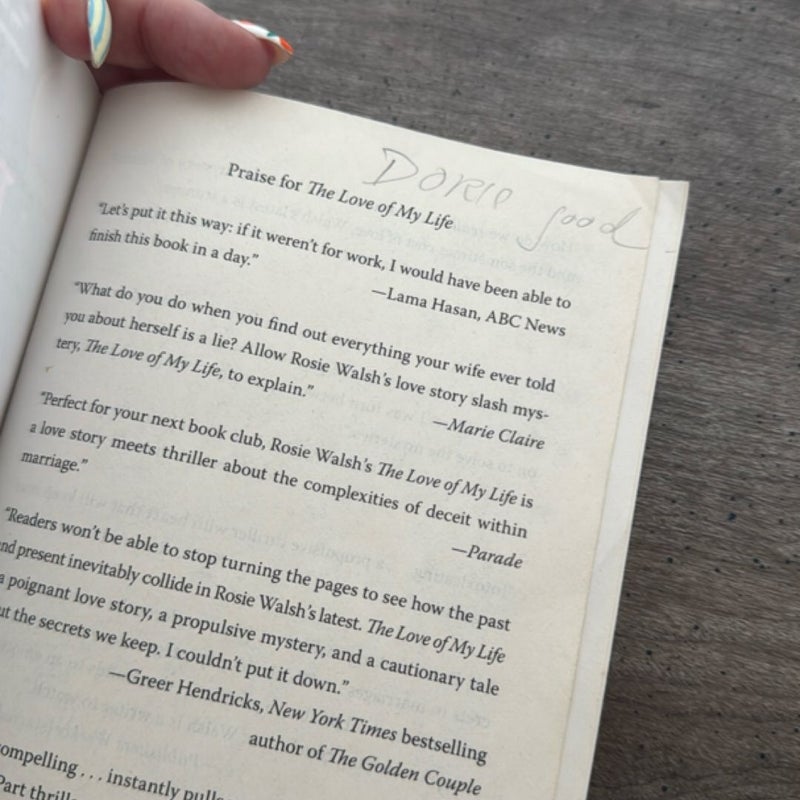 Dorie good
Praise for The Love of My Life
“Let’s put it this way: if it weren’t for work, I would have been able to
finish this book in a day.”
—Lama Hasan, ABC News
“What do you do when you find out everything your wife ever told
you about herself is a lie? Allow Rosie Walsh’s love story slash mys-
tery, The Love of My Life, to explain.”
—Marie Claire
“Perfect for your next book club, Rosie Walsh’s The Love of My Life is
a love story meets thriller about the complexities of deceit within
marriage.”
—Parade
“Readers won’t be able to stop turning the pages to see how the past
nd present inevitably collide in Rosie Walsh’s latest. The Love of My Life
a poignant love story, a propulsive mystery, and a cautionary tale
ut the secrets we keep. I couldn’t put it down.”
—Greer Hendricks, New York Times bestselling
author of The Golden Couple
ompelling . . . instantly pull
Part thrill